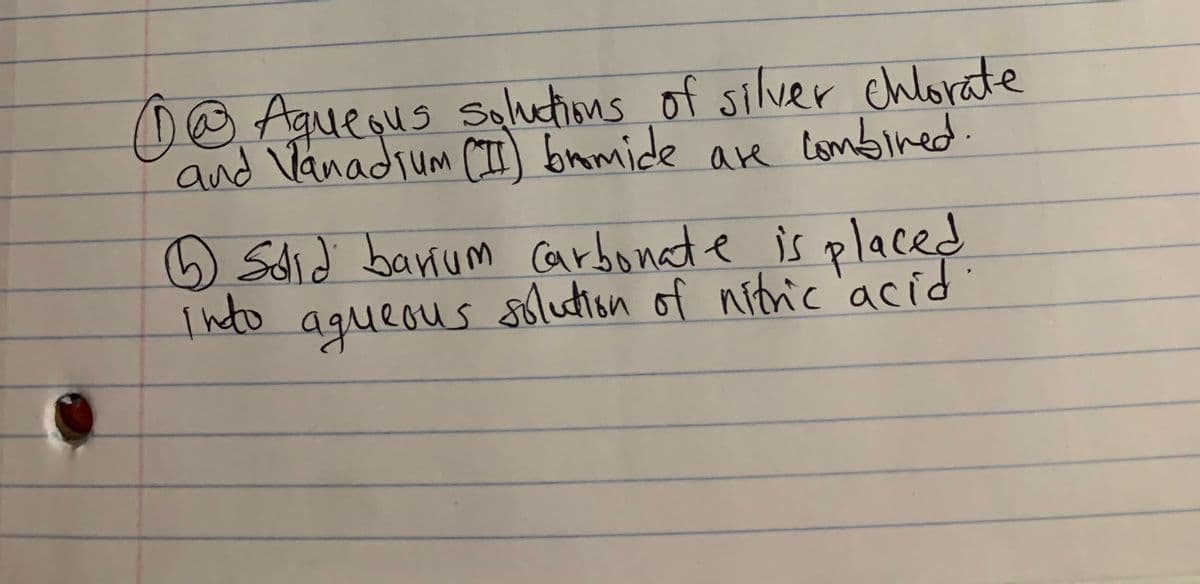 ① ⓐ Aqueous solutions of silver chlorate
and Vanadium (II) bromide are combined.
ⓑ Solid barium carbonate is placed
into aqueous solution of nitric acid.